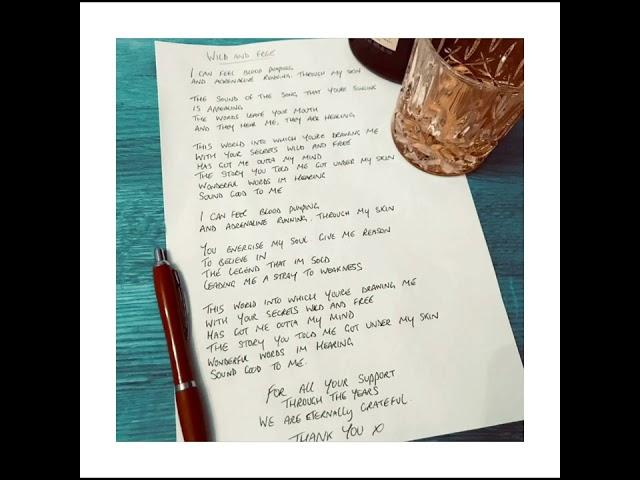 WILD AND FREE
I CAN FEEL BLOOD PUMPING
AND ADRENALINE RUNNING, THROUGH MY SKIN
THE SOUND OF THE SONG, THAT YOU'RE SINGING
IS APPEALING
THE WORDS LEAVE YOUR MOUTH
AND THEY HEAR ME, THEY ARE HEALING
THIS WORLD INTO WHICH YOU'RE DRAWING ME
WITH YOUR SECRETS WILD AND FREE
HAS GOT ME OUTTA MY MIND
THE STORY YOU TOLD ME GOT UNDER MY SKIN
WONDERFUL WORDS IM HEARING
SOUND GOOD TO ME
I CAN FEEL BLOOD PUMPING
AND ADRENALINE RUNNING, THROUGH MY SKIN
YOU ENERGISE MY SOUL GIVE ME REASON
TO BELIEVE IN
THE LEGEND THAT IM SOLD
LEADING ME A STRAY TO WEAKNESS
THIS WORLD INTO WHICH YOU'RE DRAWING ME
WITH YOUR SECRETS WILD AND FREE
HAS GOT ME OUTTA MY MIND
THE STORY YOU TOLD ME GOT UNDER MY SKIN
WONDERFUL WORDS IM HEARING
SOUND GOOD TO ME.
FOR ALL YOUR SUPPORT
THROUGH THE YEARS
WE ARE ETERNALLY GRATEFUL.
THANK YOU X